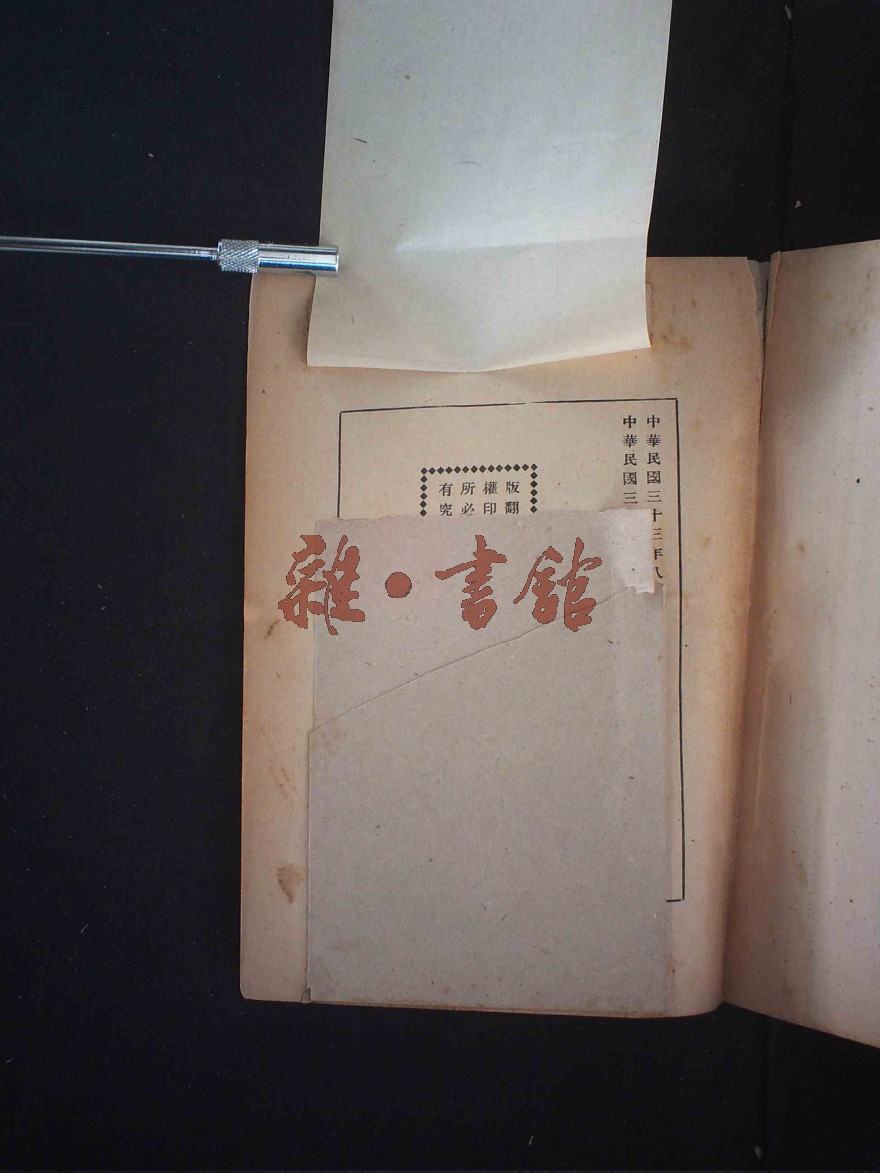 中華民國三十三年八
中華民國三
版權所有
翻印必究
雜·書館